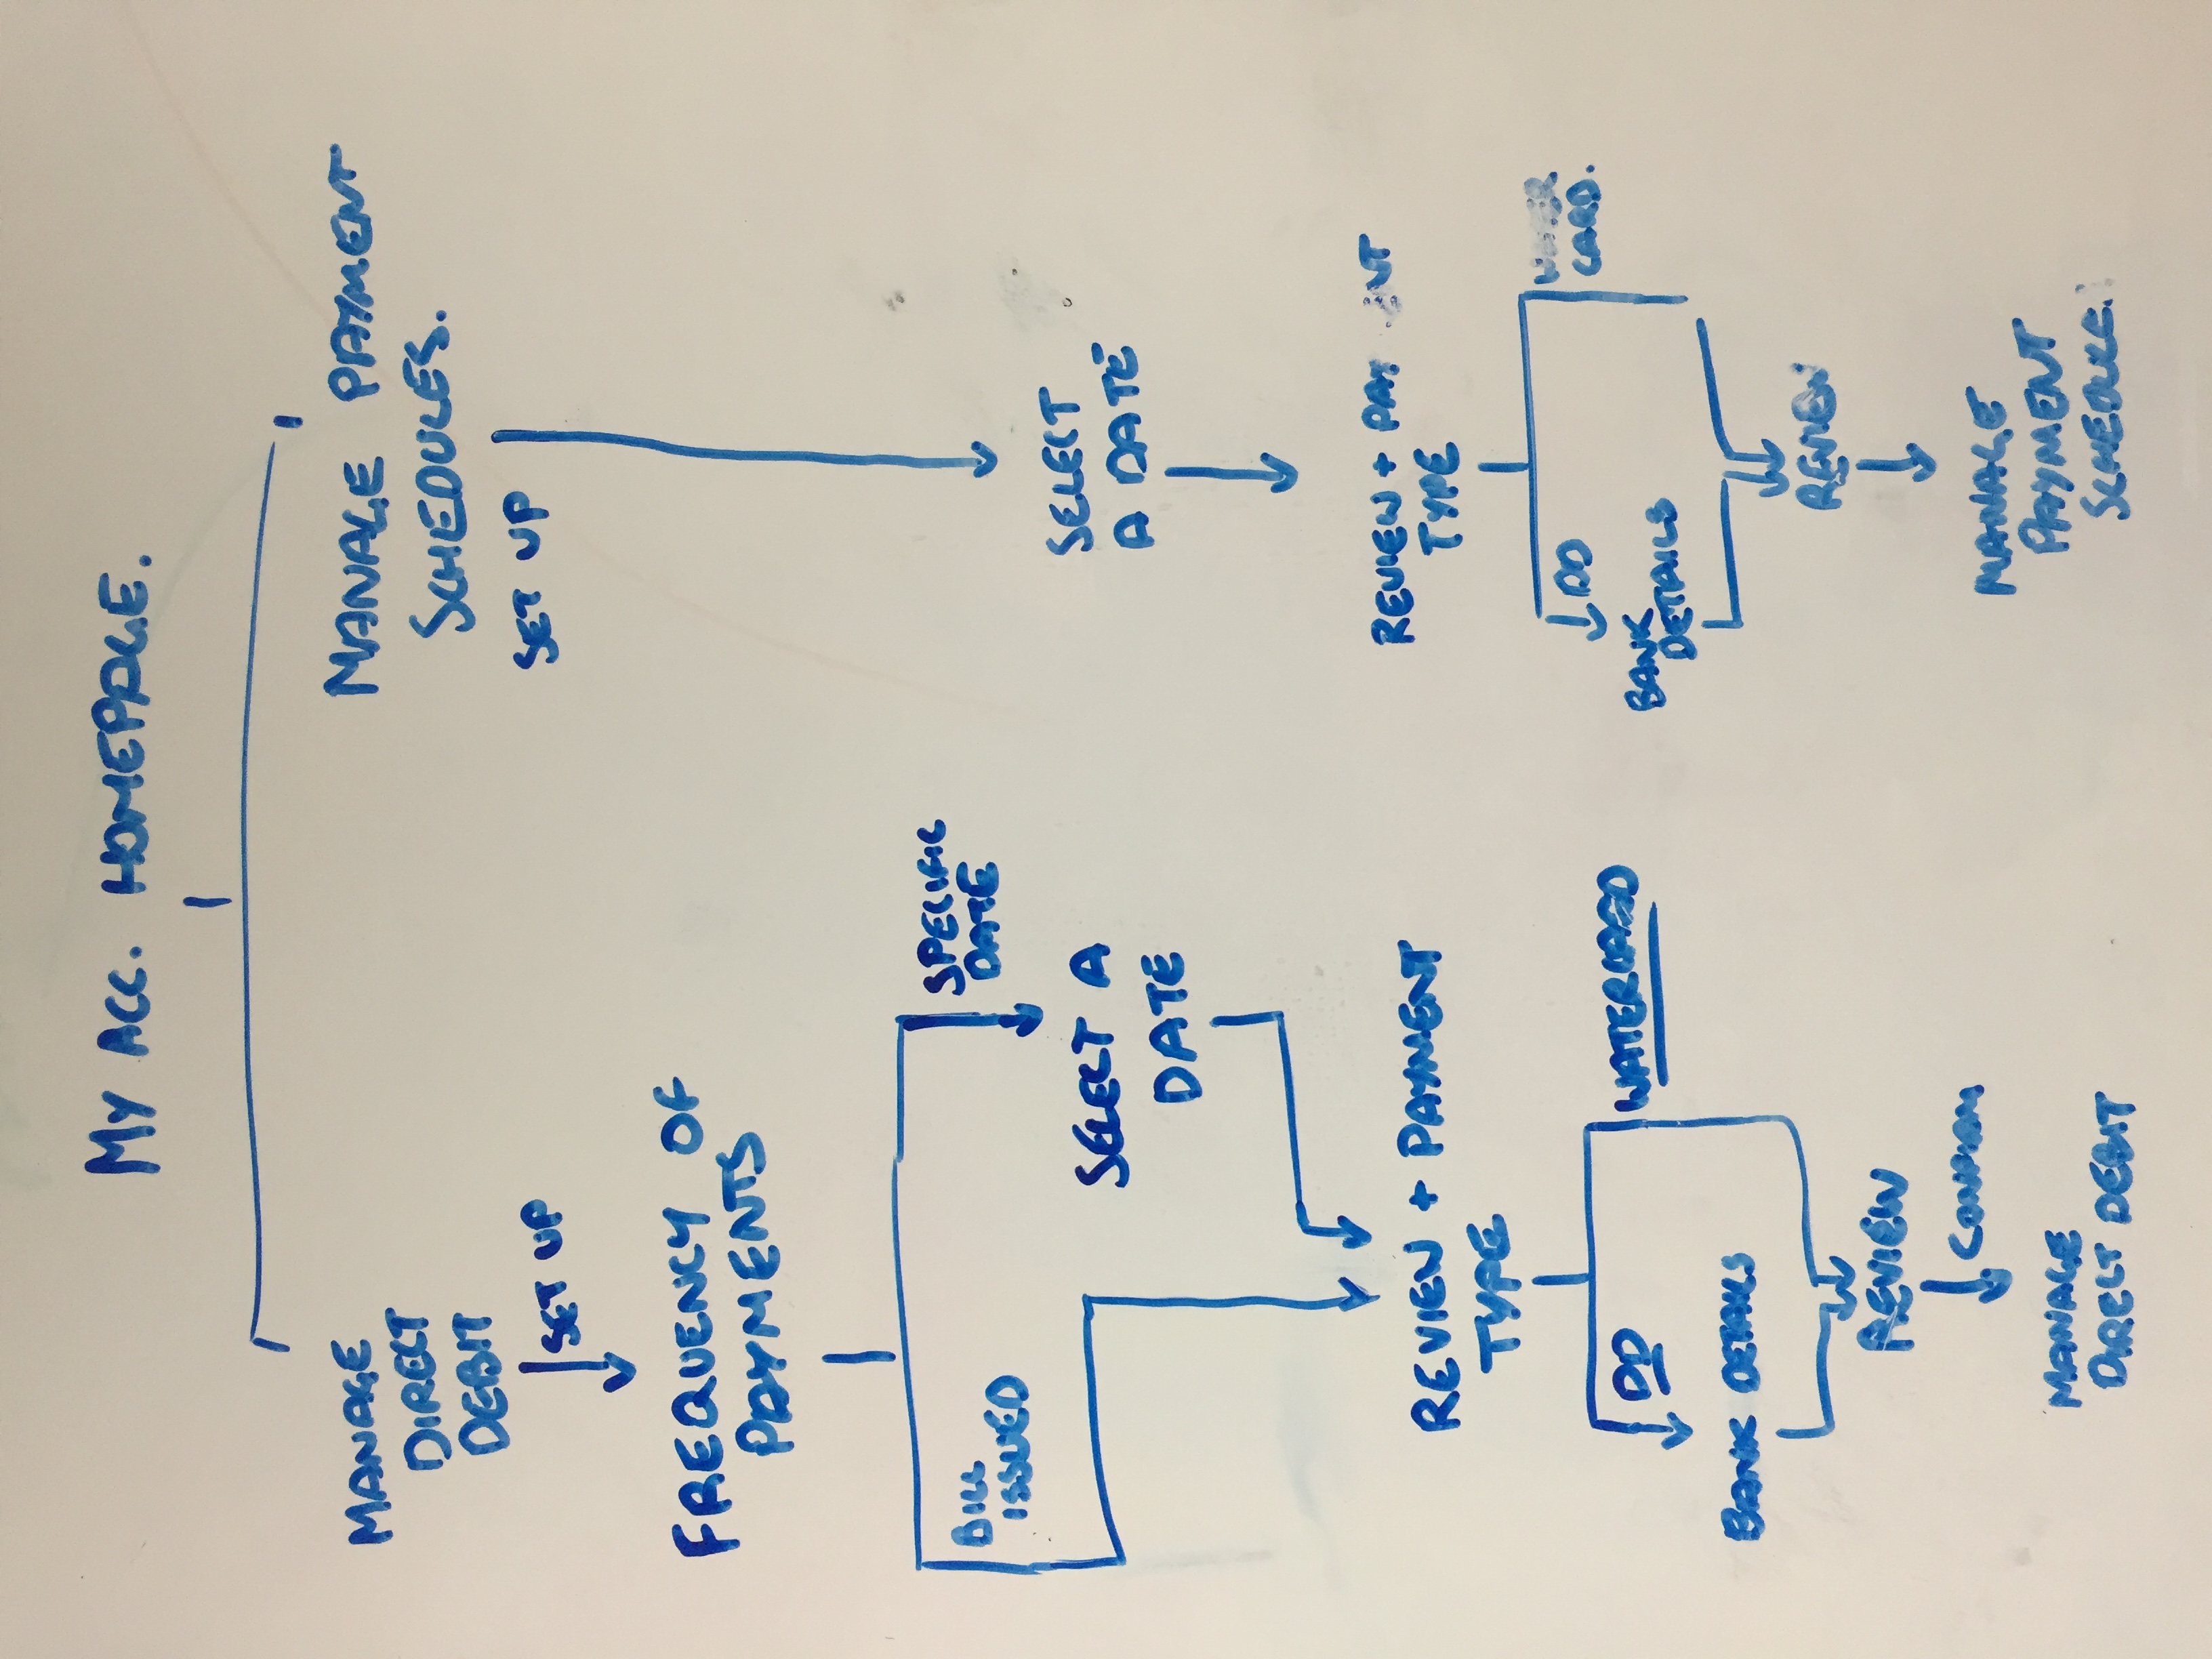 MY ACC. HOMEPAGE.
MANAGE
DIRECT
DEBIT
SET UP
FREQUENCY OF
PAYMENTS
BILL
ISSUED
SPECIFIC
DATE
SELECT A
DATE
REVIEW + PAYMENT
TYPE
DD
WATERCARD
BANK DETAILS
REVIEW
CONFIRM
MANAGE
DIRECT DEBIT
MANAGE PAYMENT
SCHEDULES.
SET UP
SELECT
A DATE
REVIEW + PAYMENT
TYPE
DD
WATER
CARD.
BANK
DETAILS
REVIEW
MANAGE
PAYMENT
SCHEDULE.